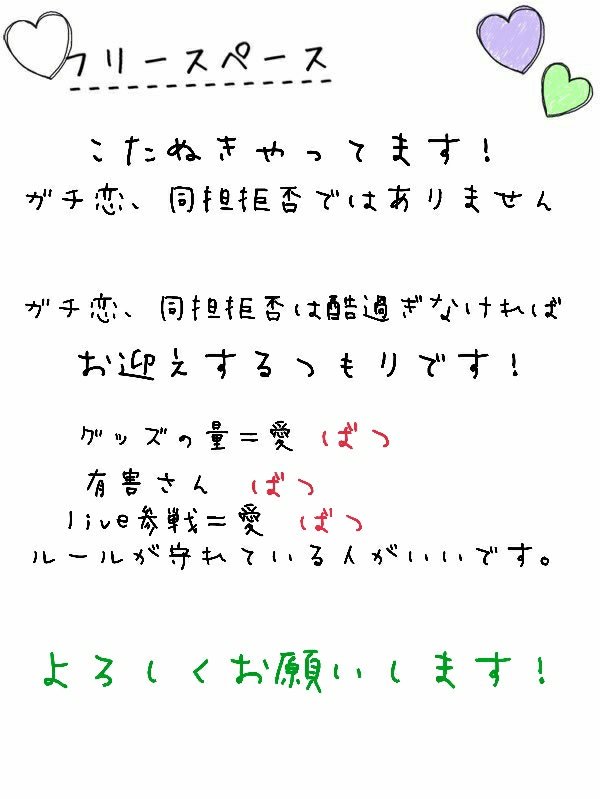 フリースペース
こたぬきやってます!
ガチ恋、同担拒否ではありません
ガチ恋、同担拒否は酷過ぎなければ
お迎えするつもりです!
グッズの量=愛 ばつ
有害さん ばつ
live参戦=愛 ばつ
ルールが守れている人がいいです。
よろしくお願いします!